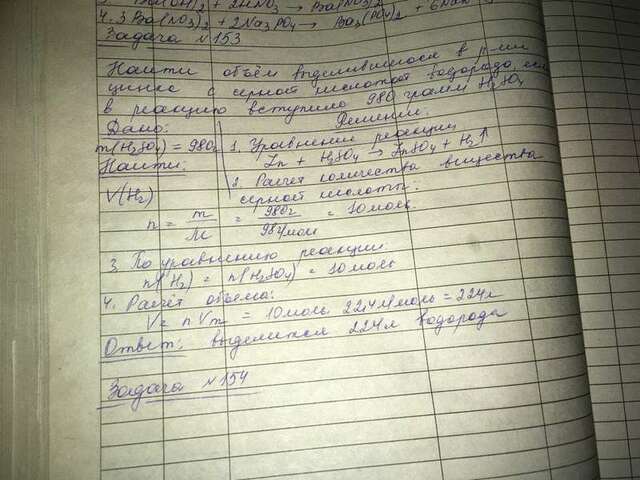 Ba(OH)2 + 2HNO3 → Ba(NO3)2
4. 3Ba(NO3)2 + 2Na3PO4 → Ba3(PO4)2 + 6NaN
Задача №153
Найти объём выделившегося в р-ии
цинка с серной кислотой водорода, если
в реакцию вступило 980 грамм H2SO4
Дано: Решение:
m(H2SO4) = 980г 1. Уравнение реакции
Найти: Zn + H2SO4 → ZnSO4 + H2↑
V(H2) 2. Расчет количества вещества
серной кислоты:
n = m/M = 980г/98г/моль = 10 моль
3. По уравнению реакции
n(H2) = n(H2SO4) = 10 моль
4. Расчёт объема:
V = n Vm = 10моль 22,4л/моль = 224л
Ответ: выделится 224л водорода
Задача №154